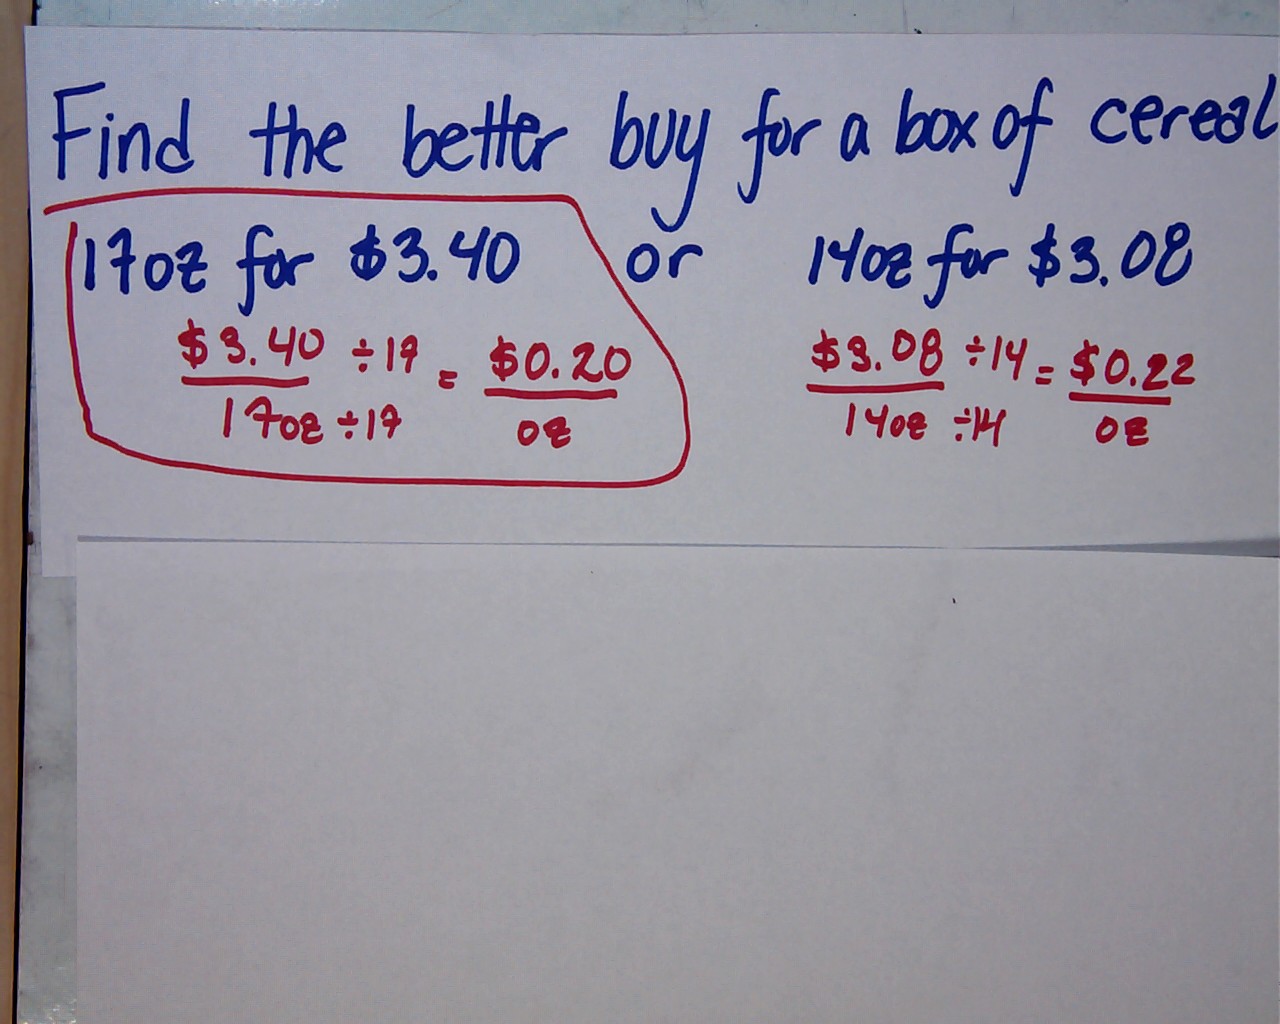 Find the better buy for a box of cereal
17oz for $3.40 or 14oz for $3.08
$3.40 ÷17 = $0.20 $3.08 ÷14 = $0.22
17oz ÷17 oz 14oz ÷14 oz